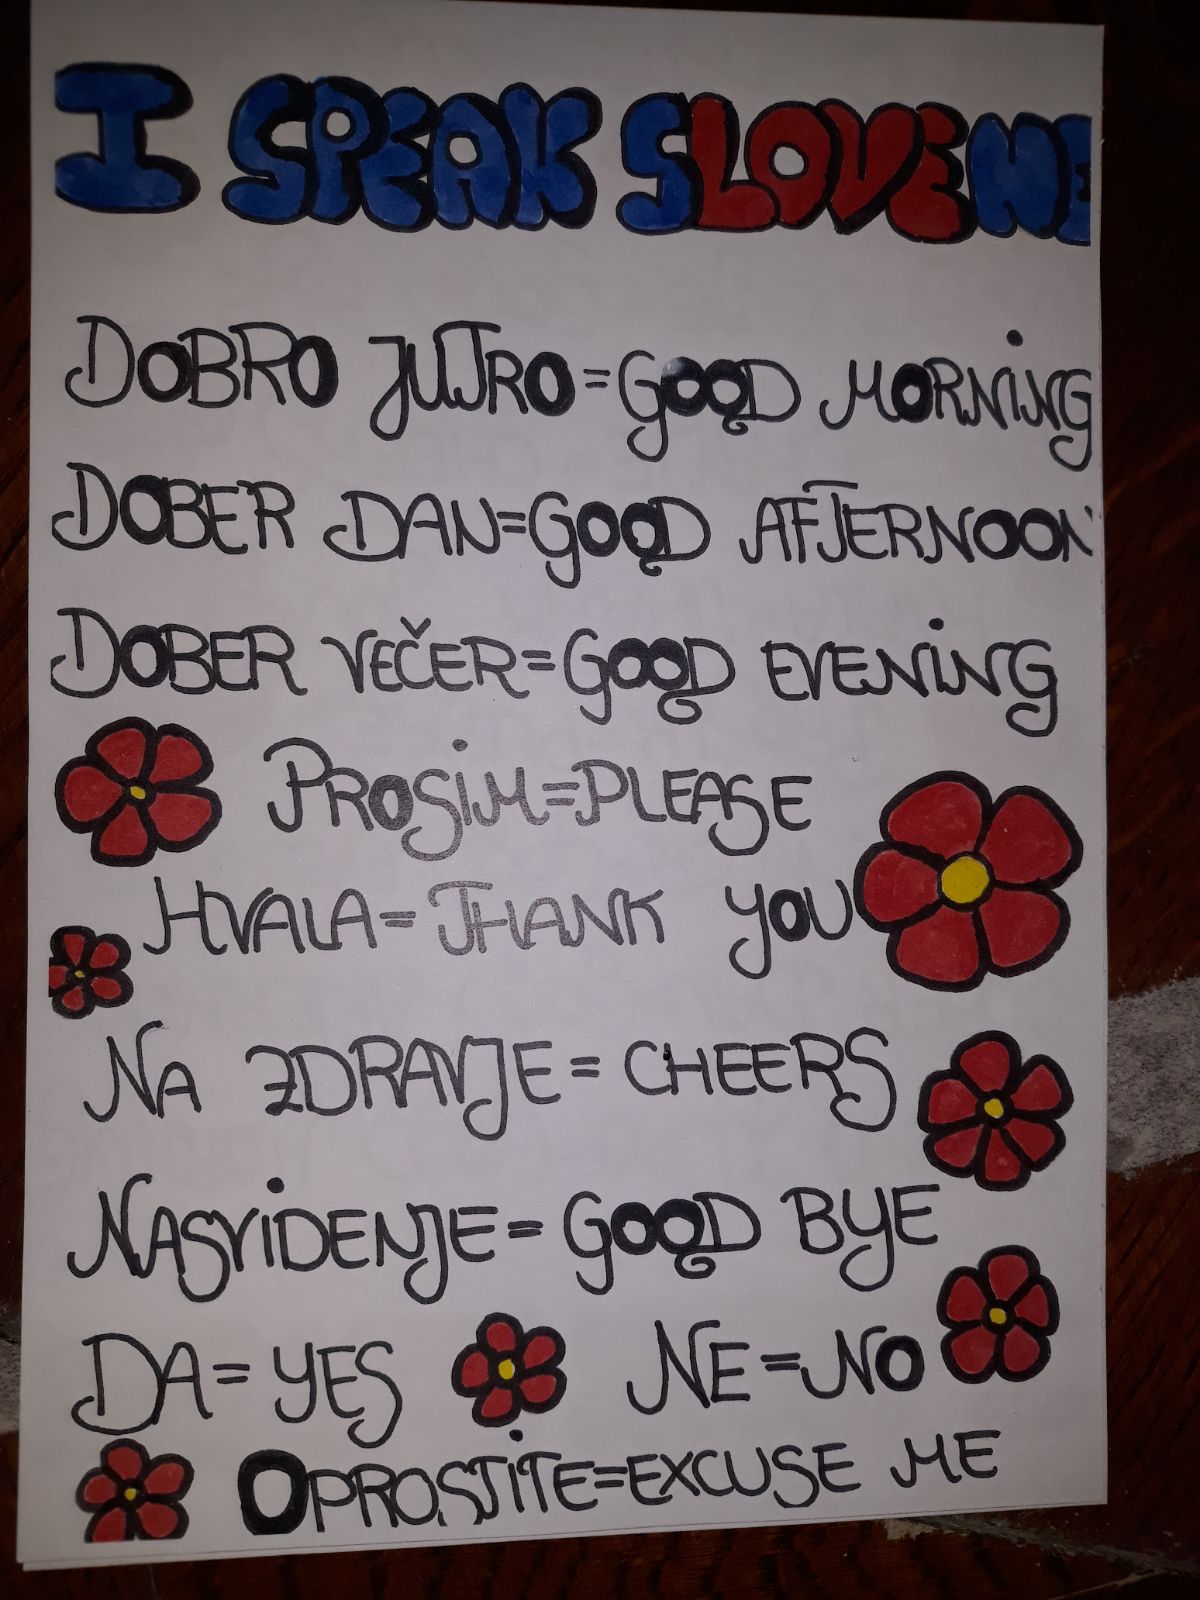 I SPEAK SLOVENE
DOBRO JUTRO=GOOD MORNING
DOBER DAN=GOOD AFTERNOON
DOBER VEČER=GOOD EVENING
PROSIM=PLEASE
HVALA=THANK YOU
NA ZDRAVJE=CHEERS
NASVIDENJE=GOOD BYE
DA=YES NE=NO
OPROSTITE=EXCUSE ME